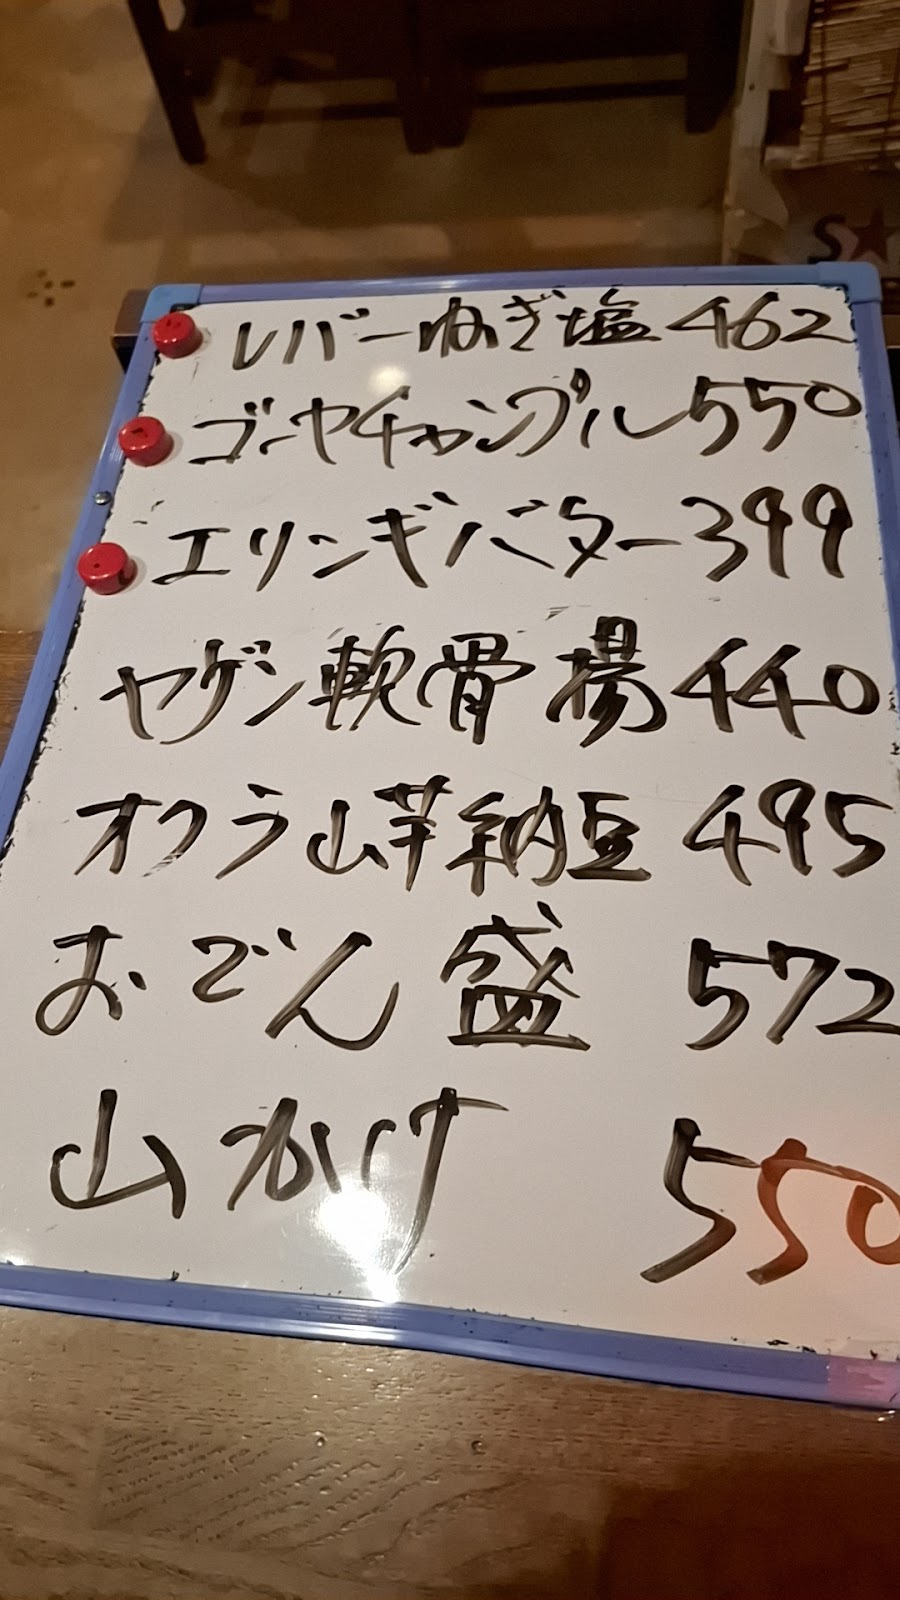 S★
レバーねぎ塩 462
ゴーヤチャンプル 550
エリンギバター 399
ヤゲン軟骨揚 440
オクラ山芋納豆 495
おでん盛 572
山かけ 550